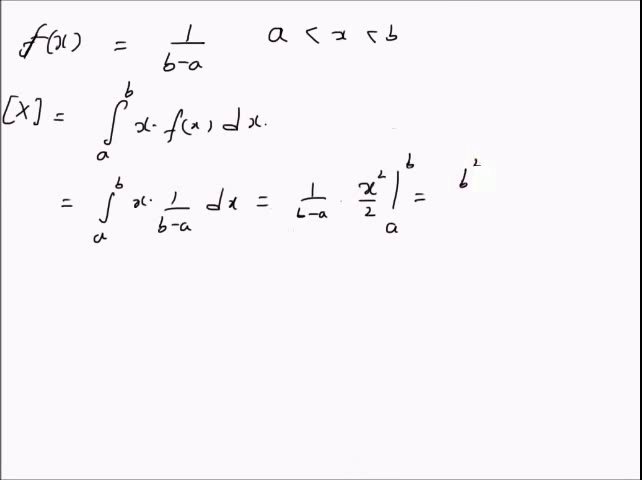 f(x) = 1/(b-a) a < x < b
[X] = ∫_a^b x· f(x) dx.
= ∫_a^b x· 1/(b-a) dx = 1/(b-a) · x²/2 |_a^b = b²